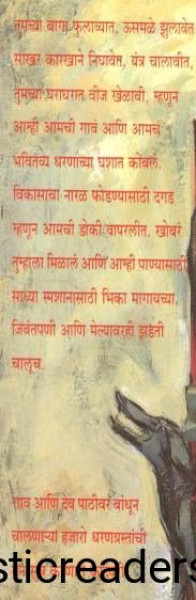 तुमच्या बागा फुलाव्यात, ऊसमळे झुलावेत
साखर कारखाने निघावेत, यंत्र चालावीत,
तुमच्या घराघरात वीज खेळावी, म्हणून
आम्ही आमची गावं आणि आमचं
भवितव्य धरणाच्या घशात कोंबलं.
विकासाचा नारळ फोडण्यासाठी दगड
म्हणून आमची डोकी वापरलीत. खोबरं
तुम्हाला मिळालं आणि आम्ही पाण्यासाठी
साध्या स्मशानासाठी भिका मागायच्या.
जिवंतपणी आणि मेल्यावरही झडती
चालूच.
गाव आणि देव पाठीवर बांधून
चालणाऱ्या हजारो धरणग्रस्तांची
sticreader